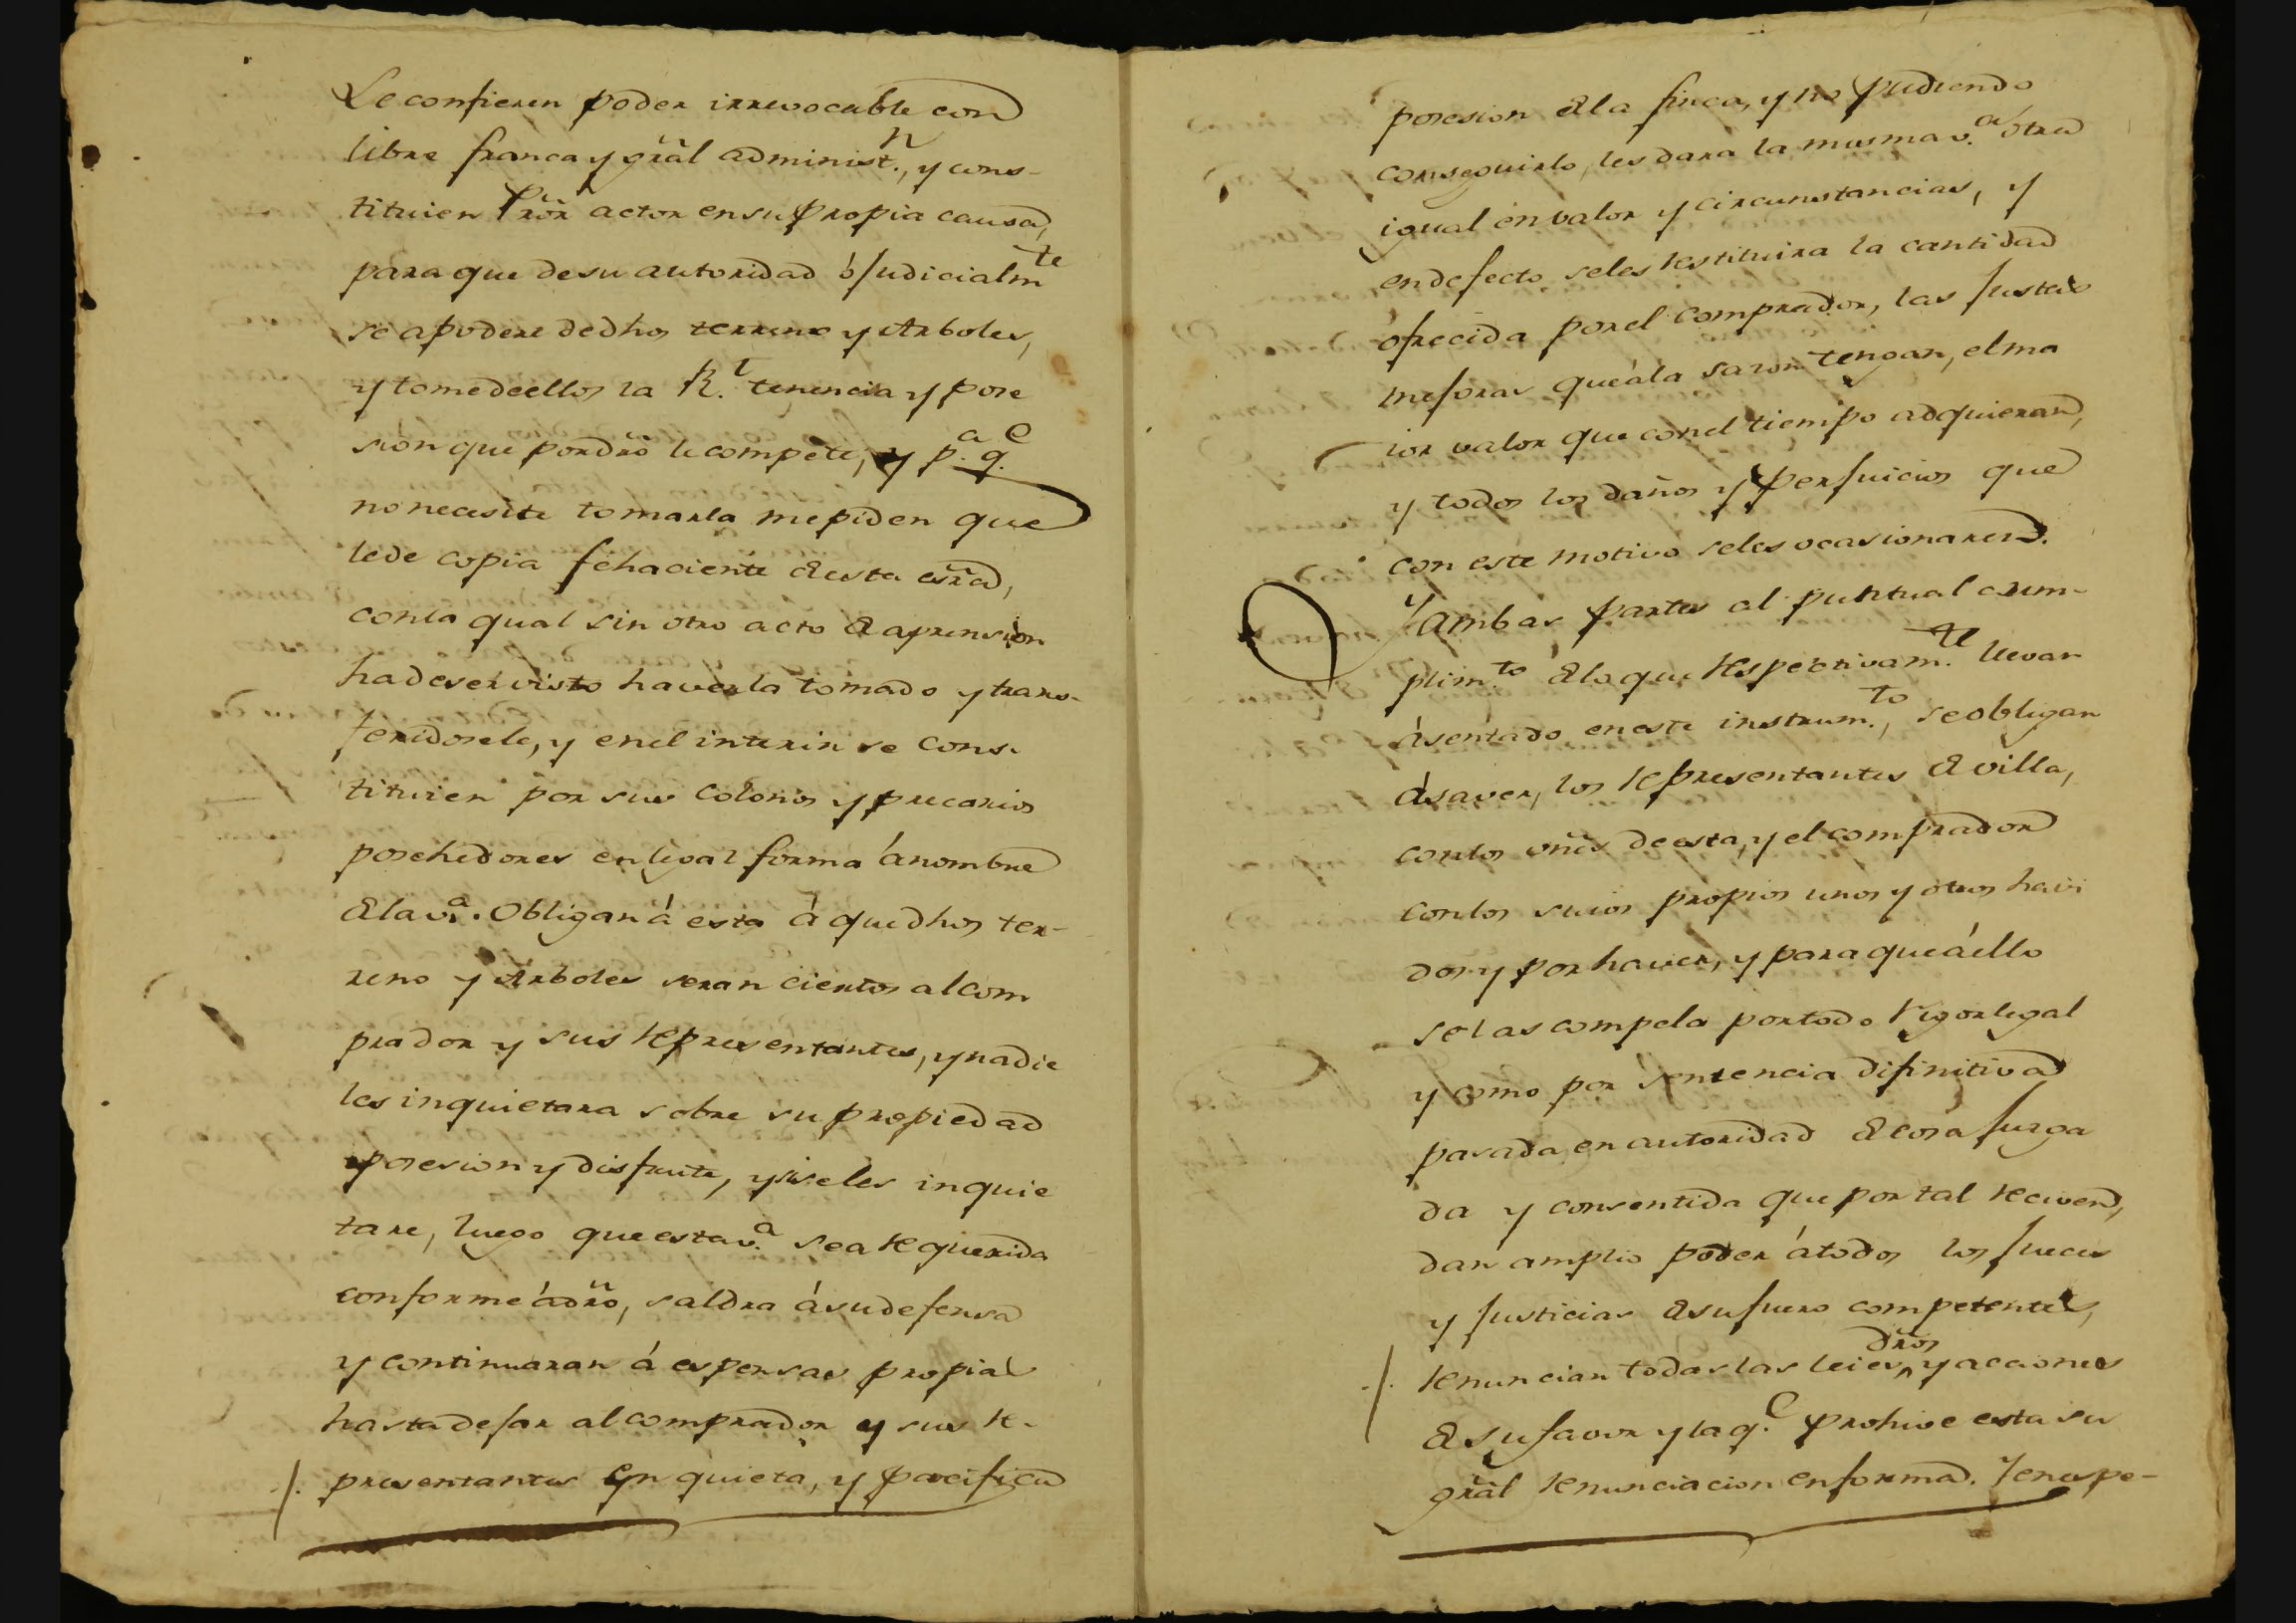 Le confieren poder irrevocable con
libre franca y gral administ.n, y cons-
tituien Pror actor en su propia causa,
para que de su autoridad ó Judicialmte
se apodere de dhos terreno y Arboles,
y tome de ellos la R.l tenencia y pose
sion que por dro le compete, y p.a q.e
no necesite tomarla me piden que
le de copia fehaciente de esta esra,
con la qual sin otro acto de aprension
ha de ser visto haverla tomado y trans-
feridosele, y en el interin se cons-
tituien por sus Colonos y precarios
posehedores en legal forma á nombre
de la v.a. Obligan á esta á que dhos ter-
reno y Arboles seran ciertos al com
prador y sus Representantes, y nadie
les inquietara sobre su propiedad
posesion y disfrute, y si se les inquie
tare, luego que esta v.a sea Requerida
conforme á dro, saldra á su defensa
y continuaran á espensas propias
hasta dejar al comprador y sus Re-
presentantes en quieta, y pacifica
posesion de la finca, y no pudiendo
conseguirlo, les dara la misma v.a otra
igual en valor y circunstancias, y
en defecto se les Restituira la cantidad
ofrecida por el comprador, las Justas
mejoras que á la sazon tengan, el ma
ior valor que con el tiempo adquieran,
y todos los daños y perjuicios que
con este motivo se les ocasionaren.
Y ambas partes al puntual cum-
plimto de lo que Respectivam.te llevan
ásentado en este instrum.to, se obligan
á saver, los Representantes de villa,
con los vnes de esta, y el comprador
con los suios propios unos y otros havi
dos y por haver, y para que á ello
se las compela por todo Rigor legal
y como por sentencia difinitiva
pasada en autoridad de cosa Juzga
da y consentida que por tal Reciven,
dan amplio poder á todos los Jueces
y Justicias de su fuero competentes,
Renuncian todas las leies, dros y acciones
de su favor y la q.e prohive esta su
gral Renunciacion en forma. Y en espe-